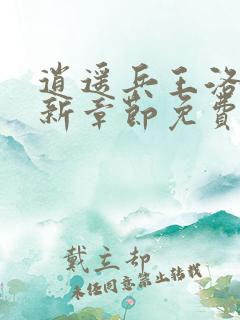 逍遥兵王洛
新章節免費
戴立却
未经同意禁止转载